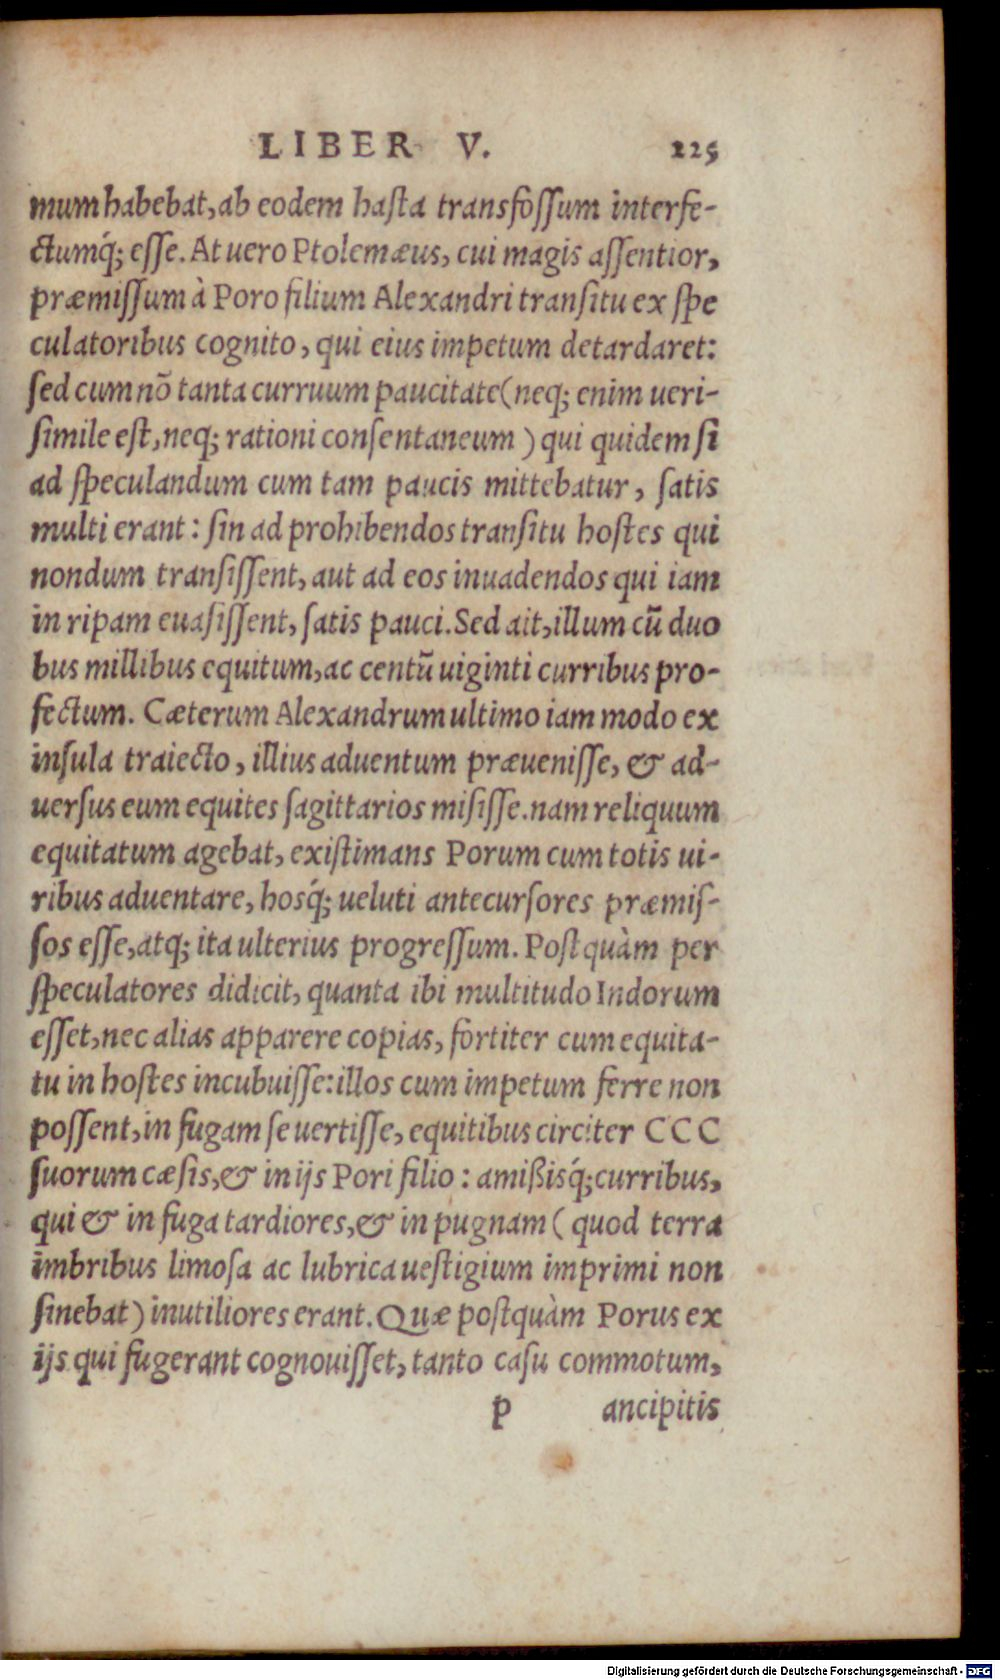 LIBER V. 225
mum habebat, ab eodem hasta transfossum interfe-
ctumq́; esse. At uero Ptolemæus, cui magis assentior,
præmissum à Poro filium Alexandri transitu ex spe
culatoribus cognito, qui eius impetum detardaret:
sed cum nõ tanta curruum paucitate (neq; enim ueri-
simile est, neq; rationi consentaneum) qui quidem si
ad speculandum cum tam paucis mittebatur, satis
multi erant: sin ad prohibendos transitu hostes qui
nondum transissent, aut ad eos inuadendos qui iam
in ripam euasissent, satis pauci. Sed ait, illum cũ duo
bus millibus equitum, ac centũ uiginti curribus pro-
fectum. Cæterum Alexandrum ultimo iam modo ex
insula traiecto, illius aduentum præuenisse, & ad-
uersus eum equites sagittarios misisse. nam reliquum
equitatum agebat, existimans Porum cum totis ui-
ribus aduentare, hosq́; ueluti antecursores præmis-
sos esse, atq; ita ulterius progressum. Postquàm per
speculatores didicit, quanta ibi multitudo Indorum
esset, nec alias apparere copias, fortiter cum equita-
tu in hostes incubuisse: illos cum impetum ferre non
possent, in fugam se uertisse, equitibus circiter CCC
suorum cæsis, & in ijs Pori filio: amißisq́; curribus,
qui & in fuga tardiores, & in pugnam (quod terra
imbribus limosa ac lubrica uestigium imprimi non
sinebat) inutiliores erant. Quæ postquàm Porus ex
ijs qui fugerant cognouisset, tanto casu commotum,
p ancipitis
Digitalisierung gefördert durch die Deutsche Forschungsgemeinschaft - DFG